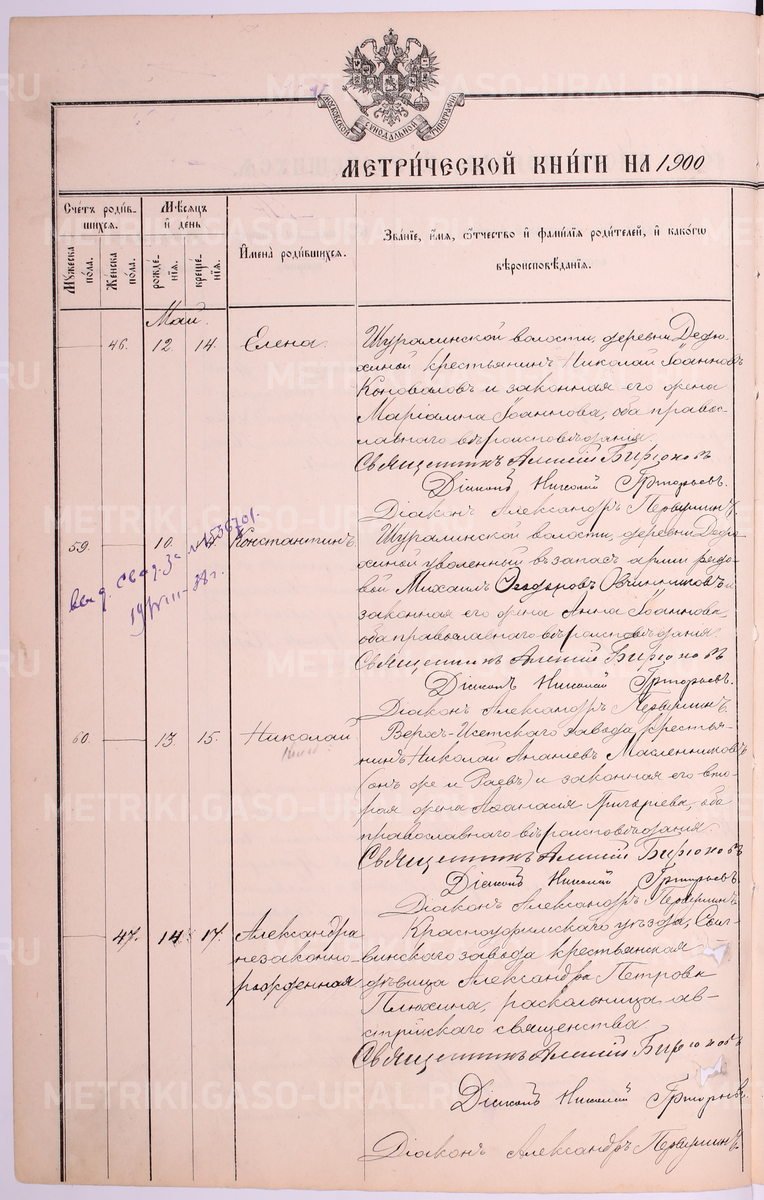 МОСКОВСКОЙ СѴНОДАЛЬНОЙ ТИПОГРАФІИ
METRIKI.GASO-URAL.RU
МЕТРИ́ЧЕСКОЙ КНИ́ГИ НА 1900
Сче́тъ роди́в-
шихся.
Мѣсяцъ
и де́нь
Имена̀ роди́вшихся.
Зва́нїе, и҆́мя, ѻ҆́тчество и҆ фами́лїя роди́телей, и҆ како́гѡ
вѣроисповѣ́данїя.
Му́жеска по́ла.
Же́нска по́ла.
рожде́нїя.
креще́нїя.
Май.
46. 12. 14. Елена.
Шуралинской волости, деревни Дедю-
хиной крестьянинъ Николай Іоанновъ
Коноваловъ и законная его жена
Маріамна Іоаннова, оба правос-
лавнаго вѣроисповѣданія.
Священникъ Алексій Бирюковъ
Діаконъ Николай Григорьевъ.
Діаконъ Александръ Первушинъ.
59. 10. Константинъ.
выд. свид. За №
19/VIII-38 г.
Шуралинской волости, деревни Дедю-
хиной уволенный въ запасъ арміи рядо-
вой Михаилъ Ѳеодоровъ Овчинниковъ и
законная его жена Анна Іоаннова,
оба православнаго вѣроисповѣданія.
Священникъ Алексій Бирюковъ
Діаконъ Николай Григорьевъ.
Діаконъ Александръ Первушинъ.
60. 13. 15. Николай
Верхъ-Исетскаго завода крестья-
нинъ Николай Ананіевъ Масленниковъ
(онъ же и Раевъ) и законная его вто-
рая жена Аѳанасія Григоріева, оба
православнаго вѣроисповѣданія.
Священникъ Алексій Бирюковъ
Діаконъ Николай Григорьевъ.
Діаконъ Александръ Первушинъ.
47. 14. 17. Александра
незаконно-
рожденная
Красноуфимскаго уѣзда, Сыл-
винскаго завода крестьянская
дѣвица Александра Петрова
Плюхина, раскольница ав-
стрійскаго священства
Священникъ Алексій Бирюковъ
Діаконъ Николай Григорьевъ.
Діаконъ Александръ Первушинъ.